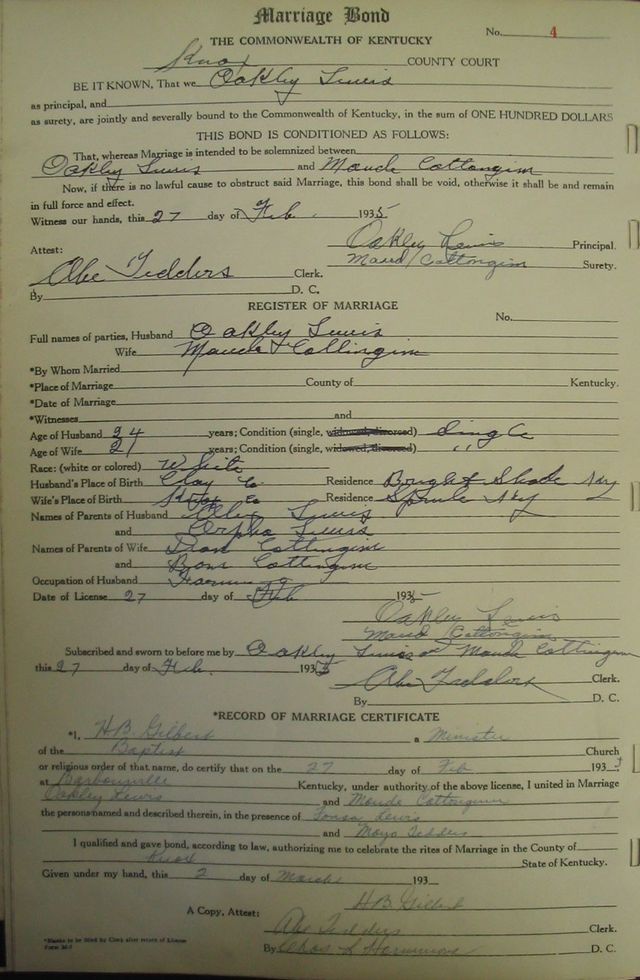 Marriage Bond
No. 4
THE COMMONWEALTH OF KENTUCKY
Knox COUNTY COURT
BE IT KNOWN, That we Oakley Lewis
as principal, and
as surety, are jointly and severally bound to the Commonwealth of Kentucky, in the sum of ONE HUNDRED DOLLARS
THIS BOND IS CONDITIONED AS FOLLOWS:
That, whereas Marriage is intended to be solemnized between
Oakley Lewis and Maude Cottongim
Now, if there is no lawful cause to obstruct said Marriage, this bond shall be void, otherwise it shall be and remain
in full force and effect.
Witness our hands, this 27 day of Feb. 1935
Oakley Lewis Principal.
Attest: Maud Cottongim Surety.
Abe Tedders Clerk.
By D. C.
REGISTER OF MARRIAGE
No.
Full names of parties, Husband Oakley Lewis
Wife Maude Cottingim
*By Whom Married
*Place of Marriage County of Kentucky.
*Date of Marriage
*Witnesses and
Age of Husband 24 years; Condition (single, widowed, divorced) Single
Age of Wife 21 years; Condition (single, widowed, divorced) "
Race: (white or colored) White
Husband's Place of Birth Clay Co Residence Bright Shade Ky
Wife's Place of Birth Knox Co Residence Sprule Ky
Names of Parents of Husband Lewis
and Orpha Lewis
Names of Parents of Wife Cottingim
and Cottingim
Occupation of Husband Farming
Date of License 27 day of Feb 1935
Oakley Lewis
Maud Cottongim
Subscribed and sworn to before me by Oakley Lewis and Maude Cottingim
this 27 day of Feb. 1935
Abe Tedders Clerk.
By D. C.
*RECORD OF MARRIAGE CERTIFICATE
*I, H.B. Gilbert a Minister
of the Baptist Church
or religious order of that name, do certify that on the 27 day of Feb 1935
at Barbourville Kentucky, under authority of the above license, I united in Marriage
Oakley Lewis and Maude Cottongim
the persons named and described therein, in the presence of Lewis
and Mayo Tedders
I qualified and gave bond, according to law, authorizing me to celebrate the rites of Marriage in the County of
Knox State of Kentucky.
Given under my hand, this 2 day of March 193
H.B. Gilbert
A Copy, Attest:
Abe Tedders Clerk.
By Chas S D. C.
*Blanks to be filled by Clerk after return of License